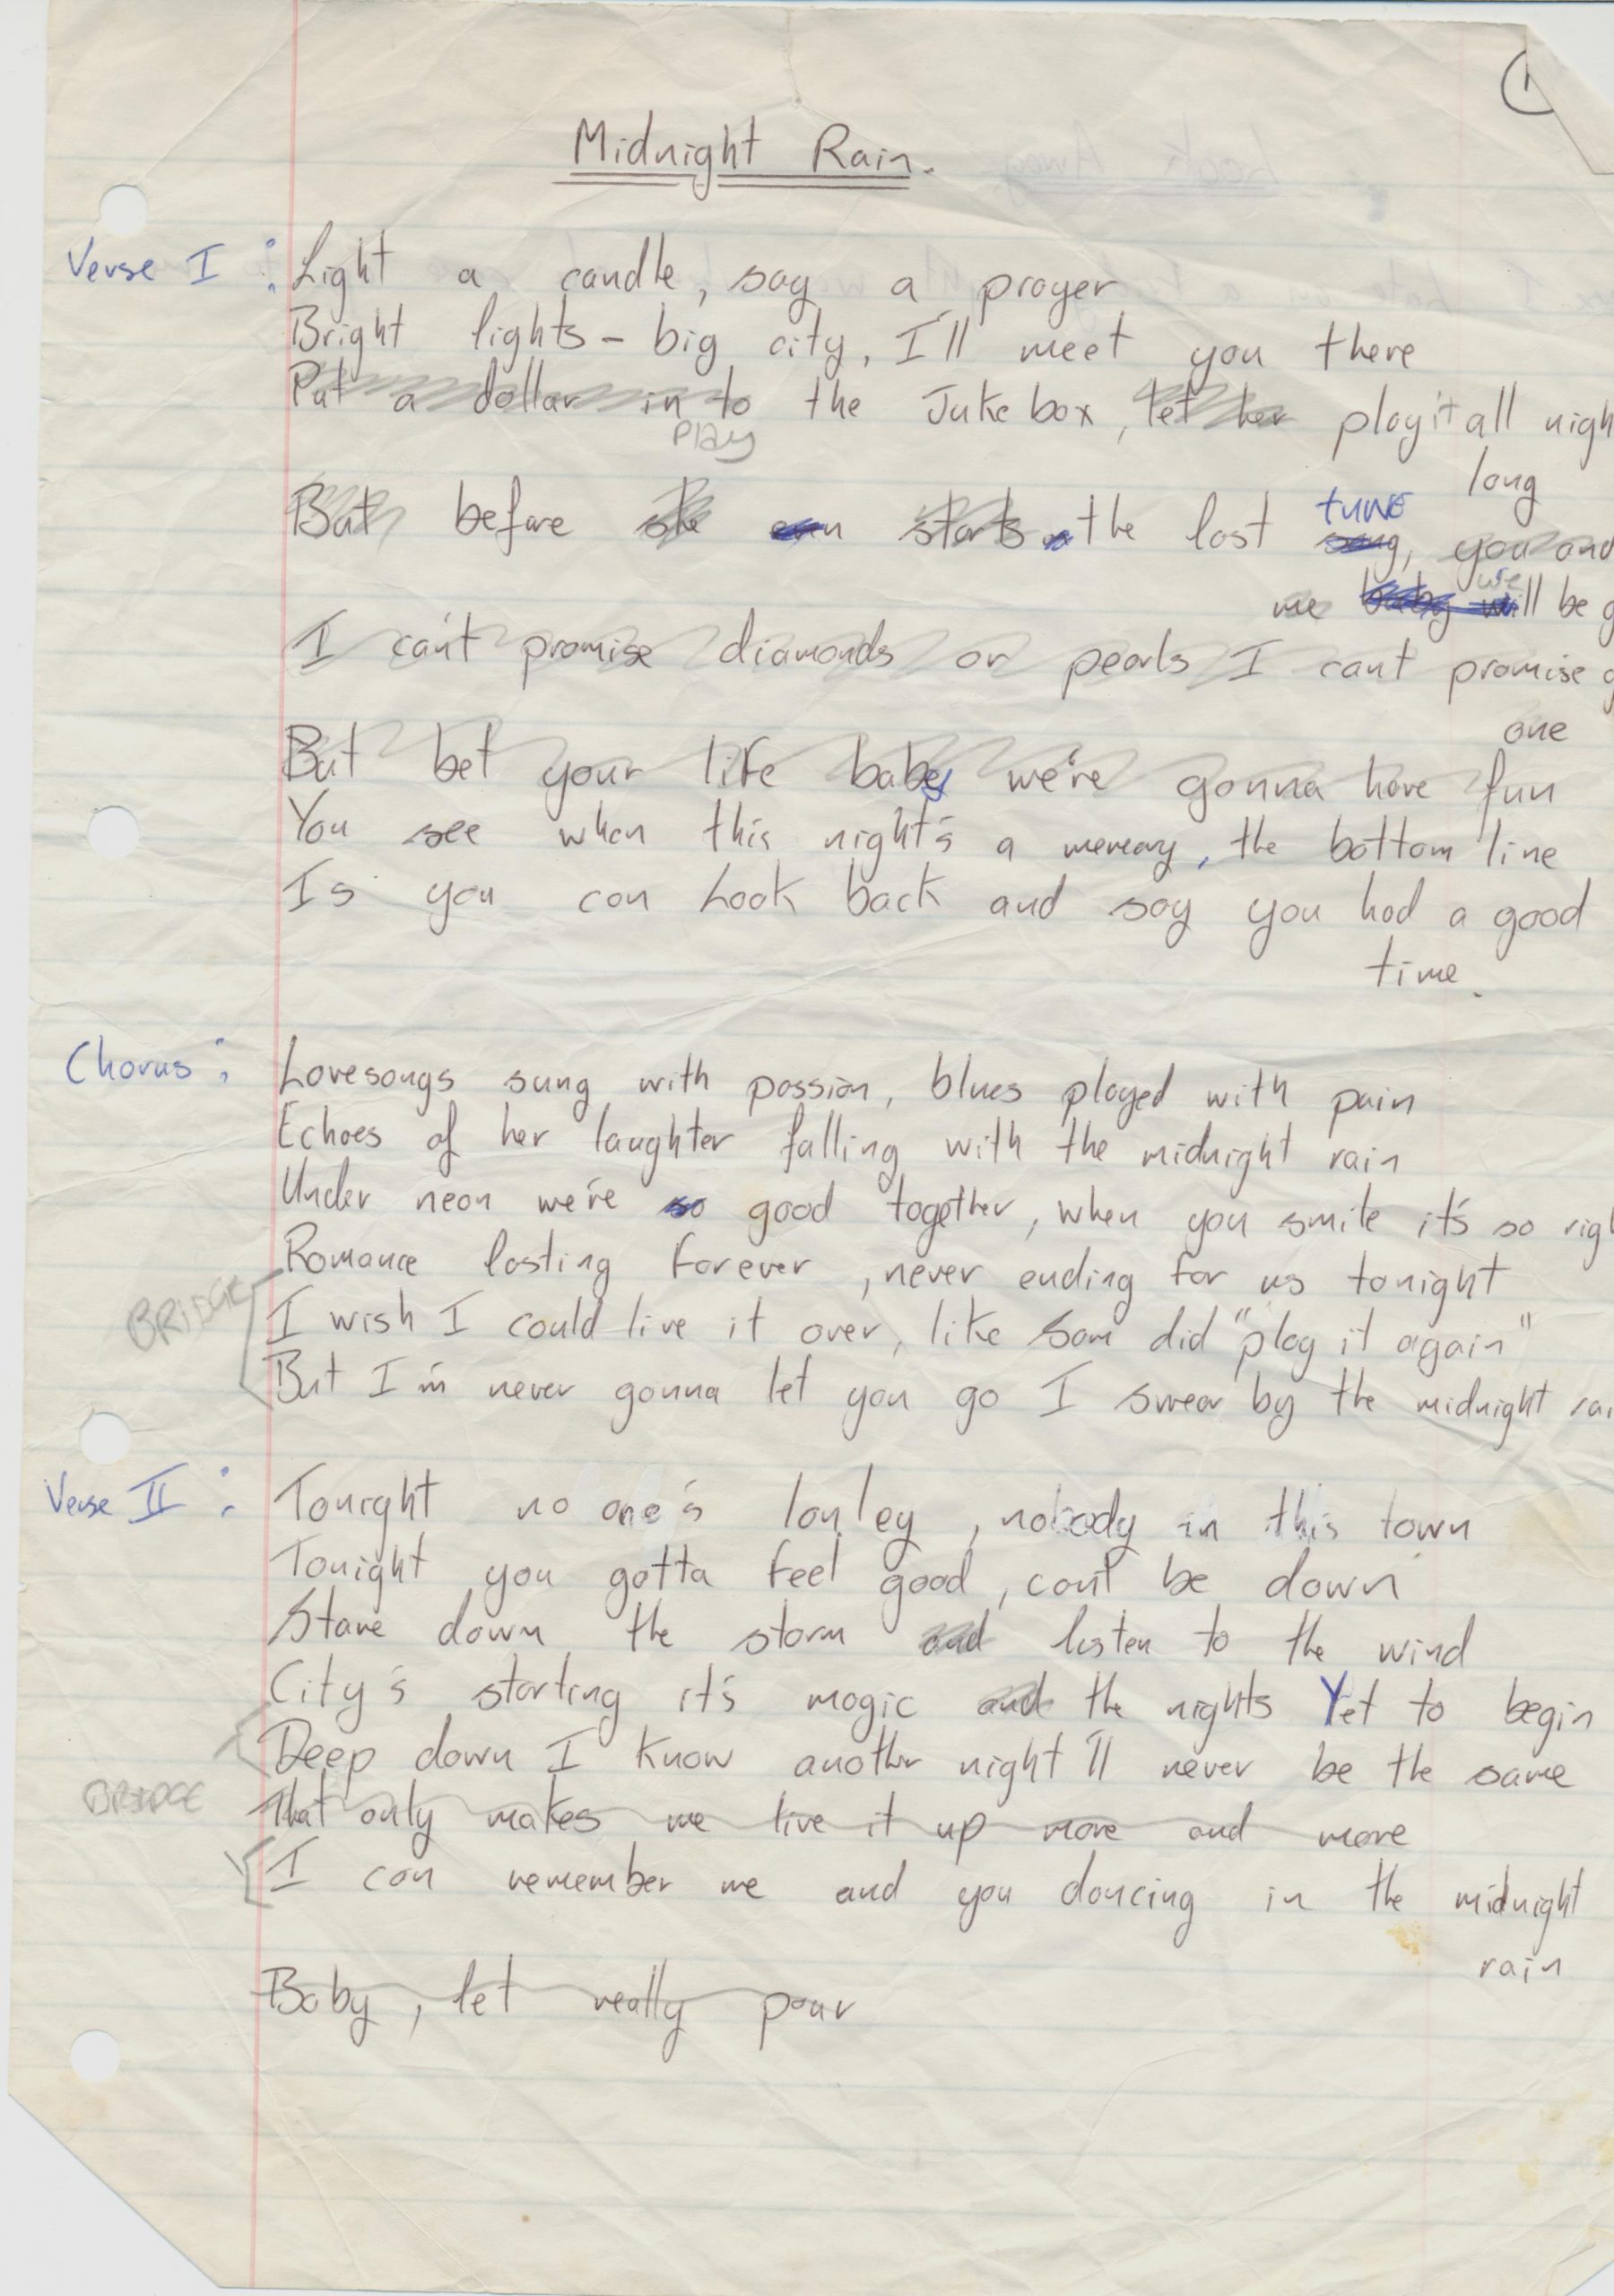 1
Midnight Rain.
Verse I : Light a candle, say a prayer
Bright lights - big city, I'll meet you there
Put a dollar in to the Juke box, let her play it all nigh
play
long
tune
But before she even starts the last song, you and
we
me baby will be g
I can't promise diamonds or pearls I cant promise
one
But bet your life baby we're gonna have fun
You see when this night's a memory, the bottom line
Is you can look back and say you had a good
time.
Chorus : Lovesongs sung with passion, blues played with pain
Echoes of her laughter falling with the midnight rain
Under neon we're so good together, when you smile it's so righ
Romance lasting forever, never ending for us tonight
BRIDGE
I wish I could live it over, like Sam did "play it again"
But I'm never gonna let you go I swear by the midnight rai
Verse II : Tonight no one's lonley, nobody in this town
Tonight you gotta feel good, can't be down
Stare down the storm and listen to the wind
City's starting it's magic and the nights Yet to begin
Deep down I know another night'll never be the same
BRIDGE
That only makes me live it up more and more
I can remember me and you dancing in the midnight
rain
Baby, let really pour